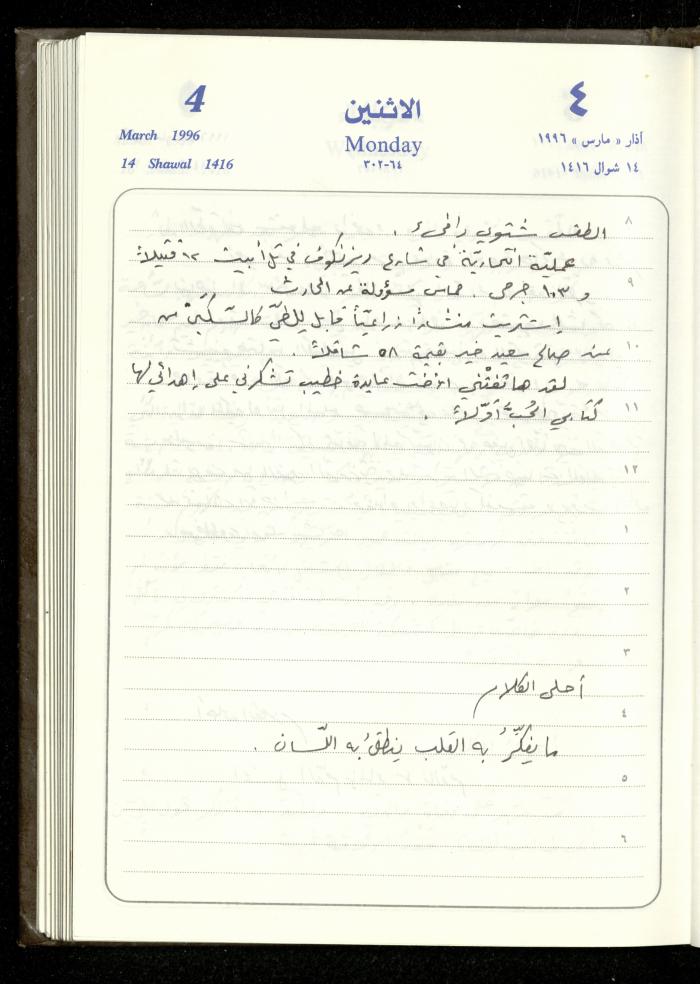 4
March 1996
14 Shawal 1416
الاثنين
Monday
٦٤-٣٠٢
٤
آذار « مارس » ١٩٩٦
١٤ شوال ١٤١٦
٨
الطقس شتوي دافىء .
عمليّة انتحاريّة في شارع ديزنكوف في تل أبيب ١٢ قتيلاً
٩
و ١٠٣ جرحى . حماس مسؤولة عن الحادث
إشتريت منشاراً زراعيّاً قابل للطيّ كالسّكّين من
١٠
عند صالح سعيد خير بقيمة ٥٨ شاقلاً .
لقد هاتفتْني الأخت عايدة خطيب تشكرني على إهدائي لها
١١
كتابي الحُبُّ أوّلاً .
١٢
١
٢
٣
أحلى الكلام
٤
ما يفكِّرُ به القلب ينطقُ به اللّسان .
٥
٦